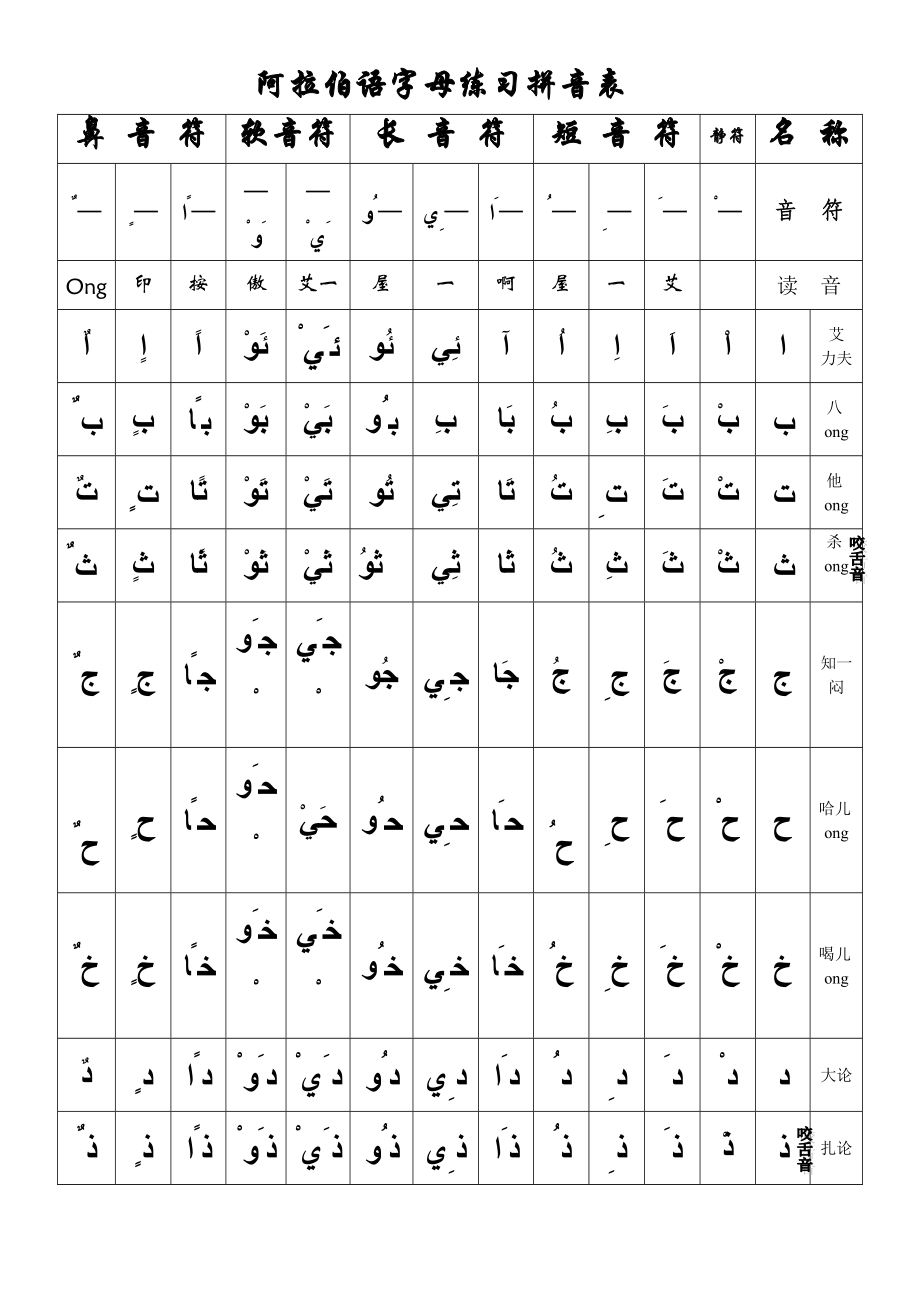 阿拉伯语字母练习拼音表
鼻音符 软音符 长音符 短音符 静符 名称
ـٌ ـٍ ـًا ـَوْ ـَيْ ـُو ـِي ـَا ـُ ـِ ـَ ـْ 音符
Ong 印 按 傲 艾一 屋 一 啊 屋 一 艾 读音
أٌ إٍ أً ئَوْ ئَيْ ئُو ئِي آ أُ إِ أَ أْ ا 艾力夫
بٌ بٍ بًا بَوْ بَيْ بُو بِ بَا بُ بِ بَ بْ ب 八ong
تٌ تٍ تًا تَوْ تَيْ تُو تِي تَا تُ تِ تَ تْ ت 他ong
ثٌ ثٍ ثًا ثَوْ ثَيْ ثُو ثِي ثَا ثُ ثِ ثَ ثْ ث 杀ong 咬舌音
جٌ جٍ جًا جَوْ جَيْ جُو جِي جَا جُ جِ جَ جْ ج 知一闷
حٌ حٍ حًا حَوْ حَيْ حُو حِي حَا حُ حِ حَ حْ ح 哈儿ong
خٌ خٍ خًا خَوْ خَيْ خُو خِي خَا خُ خِ خَ خْ خ 喝儿ong
دٌ دٍ دًا دَوْ دَيْ دُو دِي دَا دُ دِ دَ دْ د 大论
ذٌ ذٍ ذًا ذَوْ ذَيْ ذُو ذِي ذَا ذُ ذِ ذَ ذْ ذ 咬舌音 扎论